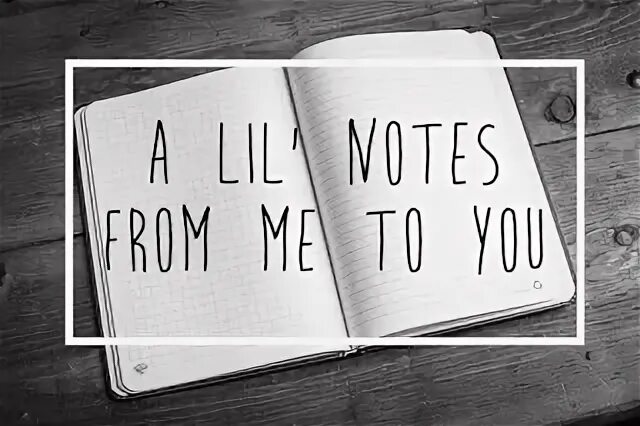 A LIL' NOTES
FROM ME TO YOU